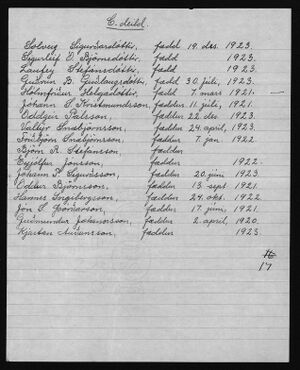 C. deild.
Sólveig Sigurðardóttir, fædd 19. des. 1923.
Sigurleif E. Björnsdóttir, fædd 1923.
Laufey Stefánsdóttir, fædd 1923.
Guðrún B. Guðlaugsdóttir, fædd 30. júlí, 1923.
Hólmfríður Helgadóttir, fædd 7. mars 1921.
Jóhann S. Kristmundsson, fæddur 11. júlí, 1921.
Oddgeir Pálsson, fæddur 22. des. 1923.
Valtýr Snæbjörnsson, fæddur 24. apríl, 1923.
Snæbjörnsson, fæddur 7. jan. 1922.
Björn R. Stefánsson, fæddur
Eyjólfur Jónsson, fæddur 1922.
Jóhann P. Sigurðsson, fæddur 20. júní 1923.
Björnsson, fæddur 13. sept. 1921.
Hannes Ingibergsson, fæddur 24. okt. 1922.
Jón S. fæddur 17. júní, 1921.
Guðmundur Jóhannsson, fæddur 2. apríl, 1920.
Kjartan fæddur 1923.
16
17